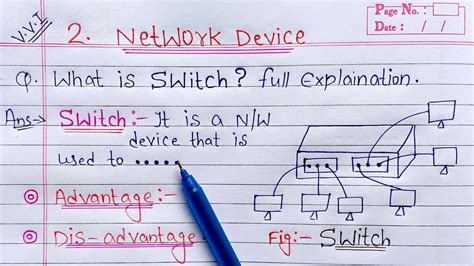 V.V.I
Page No.:
Date: / /
2. Network Device
Q. What is Switch? full Explaination.
Ans→ Switch:- It is a N/W
device that is
used to .....
Advantage:-
Dis-advantage
Fig:- Switch